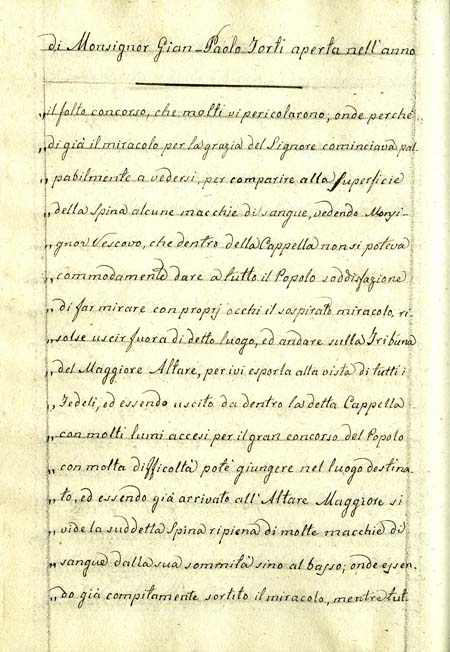 di Monsignor Gian-Paolo Torti aperta nell'anno
„il folto concorso, che molti vi pericolarono, onde perché
„di già il miracolo per la grazia del Signore cominciava pal-
„pabilmente a vedersi, per comparire alla superficie
„della Spina alcune macchie di sangue, vedendo Monsi-
„gnor Vescovo, che dentro della Cappella non si poteva
„commodamente dare a tutto il Popolo soddisfazione
„di far mirare con proprj occhi il sospirato miracolo, ri-
„solse uscir fuora di detto luogo, ed andare sulla Tribuna
„del Maggiore Altare, per ivi esporla alla vista di tutti i
„Fedeli, ed essendo uscito da dentro la detta Cappella
„con molti lumi accesi per il gran concorso del Popolo
„con molta difficoltà poté giungere nel luogo destina-
„to, ed essendo già arrivato all'Altare Maggiore si
„vide la suddetta Spina ripiena di molte macchie di
„sangue dalla sua sommità sino al basso; onde essen-
„do già compitamente sortito il miracolo, mentre tut-